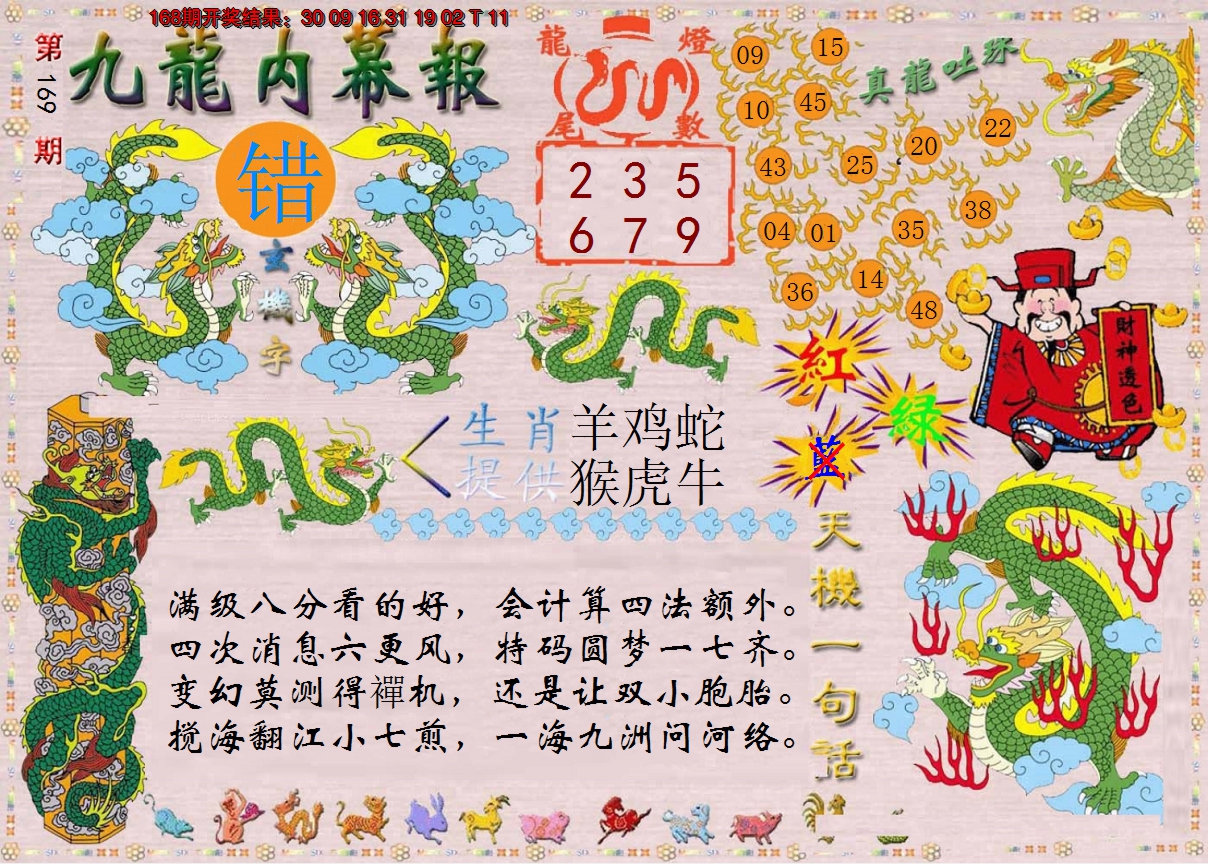 168期开奖结果：30 09 16 31 19 02 T 11
第169期
九龍内幕報
错
玄機字
龍燈尾數
2 3 5
6 7 9
真龍吐珠
09 15
10 45
20 22
43 25
38
04 01 35
36 14
48
財神透色
紅
綠
藍
生肖 羊鸡蛇
提供 猴虎牛
天機一句話
满级八分看的好，会计算四法额外。
四次消息六更风，特码圆梦一七齐。
变幻莫测得襌机，还是让双小胞胎。
搅海翻江小七煎，一海九洲问河络。